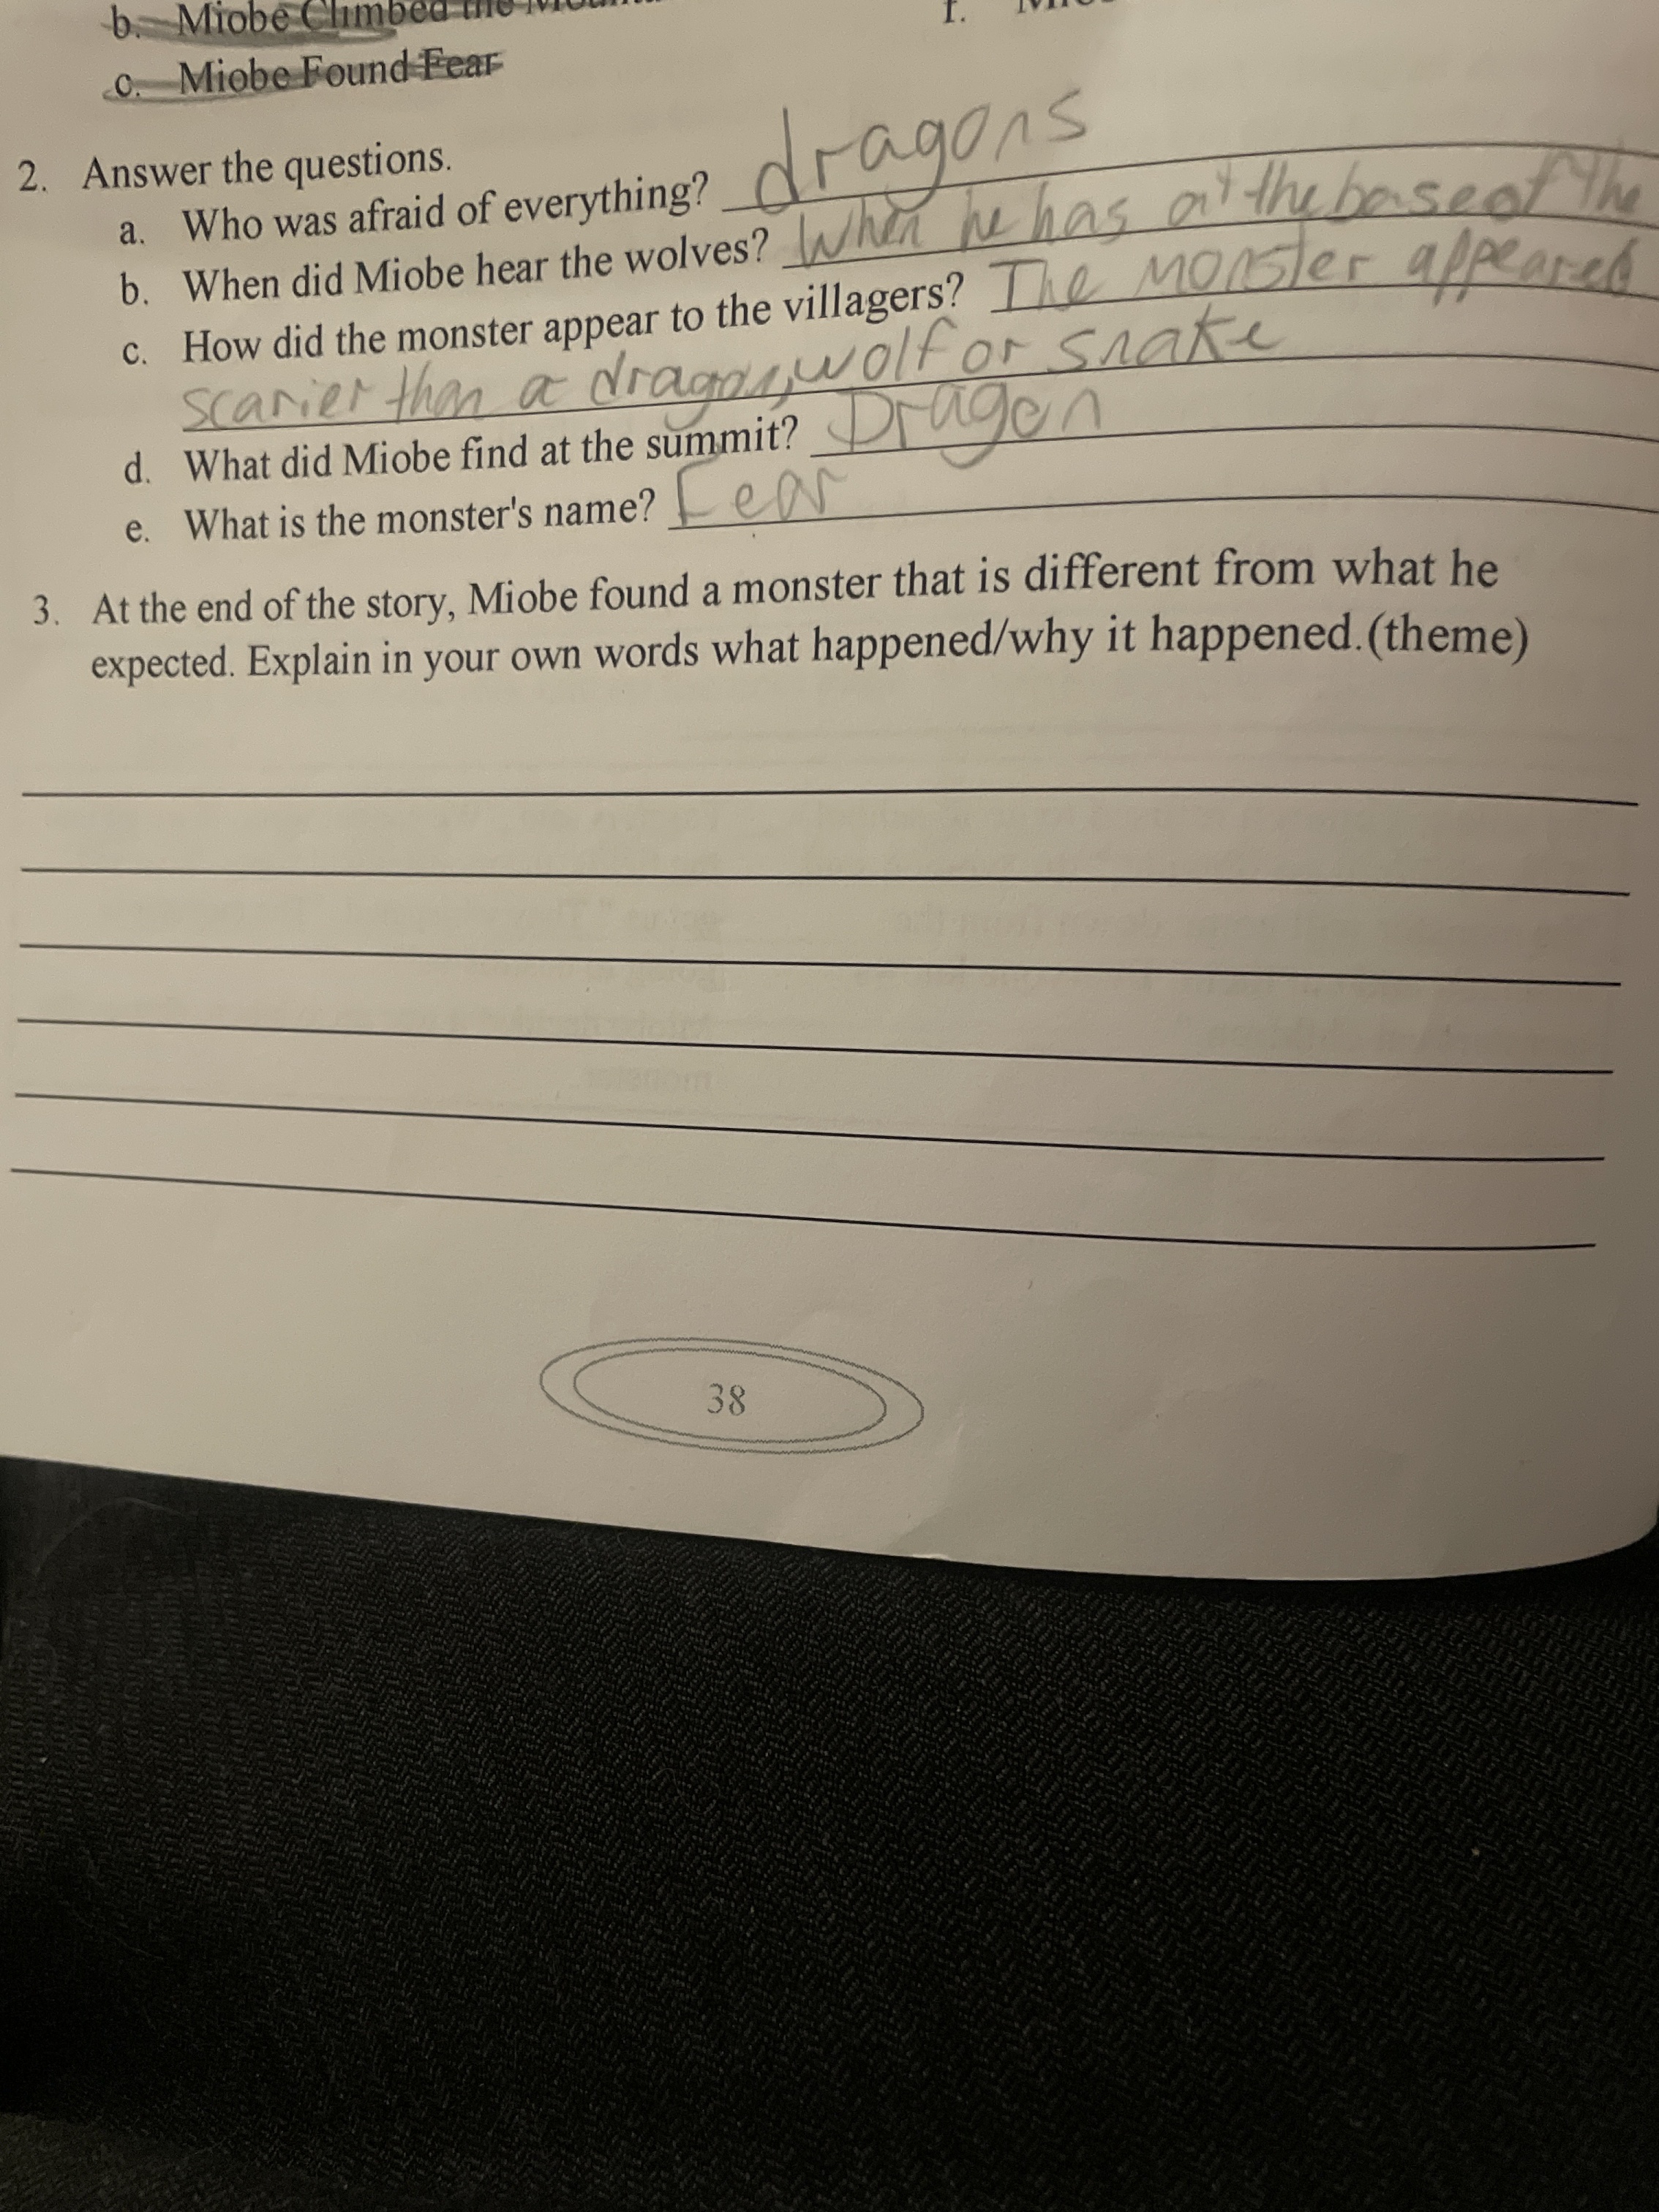 b. Miobe Climbed the
f.
c. Miobe Found Fear
2. Answer the questions.
a. Who was afraid of everything? dragons
b. When did Miobe hear the wolves? When he has at the base of the
c. How did the monster appear to the villagers? The monster appeared
scarier than a dragon, wolf or snake
d. What did Miobe find at the summit? Dragon
e. What is the monster's name? Fear
3. At the end of the story, Miobe found a monster that is different from what he
expected. Explain in your own words what happened/why it happened.(theme)
38